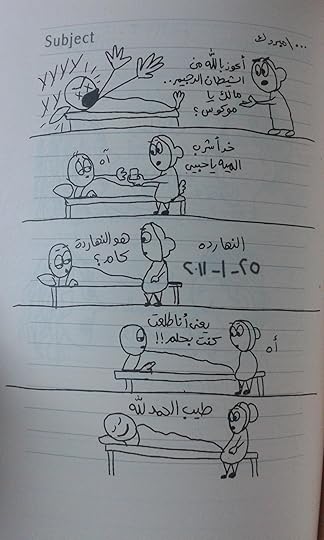 Subject
أعوز بالله من
الشيطان الرجيم..
مالك يا
موكوس؟
خد أشرب
المية يا حبيبي
آه
النهارده
٢٥-١-٢٠١١
هو النهاردة
كام؟
يعني أنا طلعت
كنت بحلم!!
أه
طيب الحمد لله